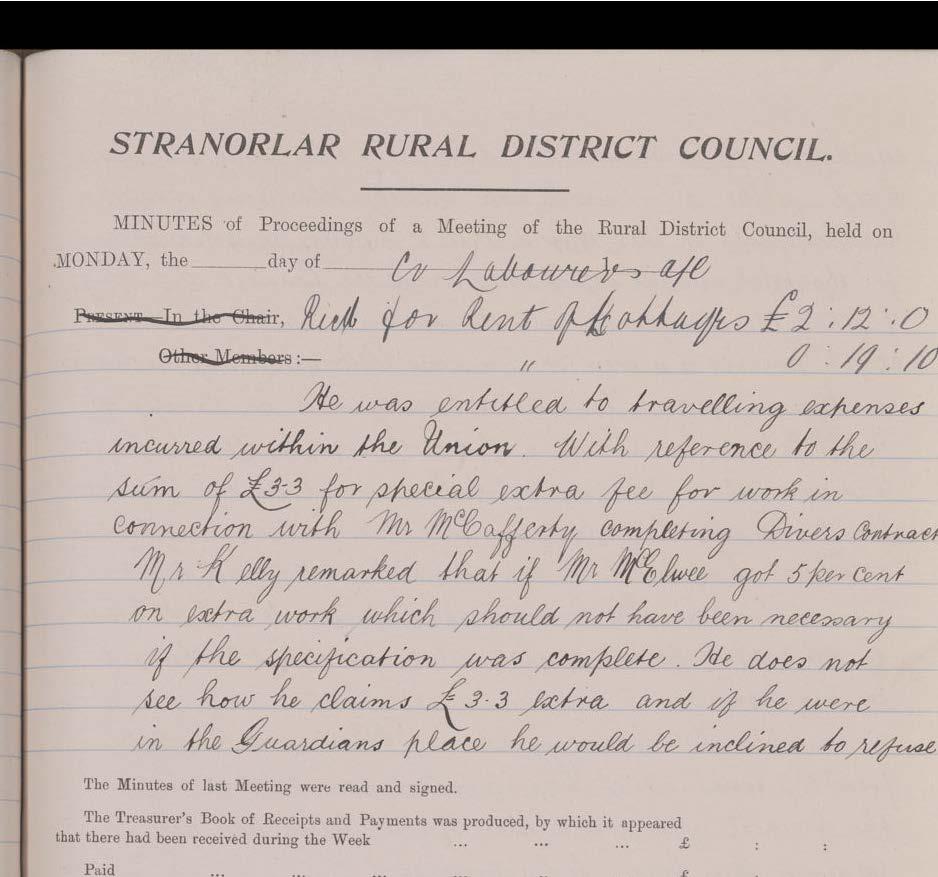 STRANORLAR RURAL DISTRICT COUNCIL.
MINUTES of Proceedings of a Meeting of the Rural District Council, held on
MONDAY, the ______ day of ______ Cr Labourers a/c
PRESENT—In the Chair, Recd for Rent of Cottages £2:12:0
Other Members:— " 0:19:10
He was entitled to travelling expenses
incurred within the Union. With reference to the
sum of £3-3 for special extra fee for work in
connection with Mr McCafferty completing Divers Contract
Mr Kelly remarked that if Mr McElwee got 5 per cent
on extra work which should not have been necessary
if the specification was complete. He does not
see how he claims £3.3 extra and if he were
in the Guardians place he would be inclined to refuse
The Minutes of last Meeting were read and signed.
The Treasurer's Book of Receipts and Payments was produced, by which it appeared
that there had been received during the Week ... ... ... £ : :
Paid ... ... ... ... ... £